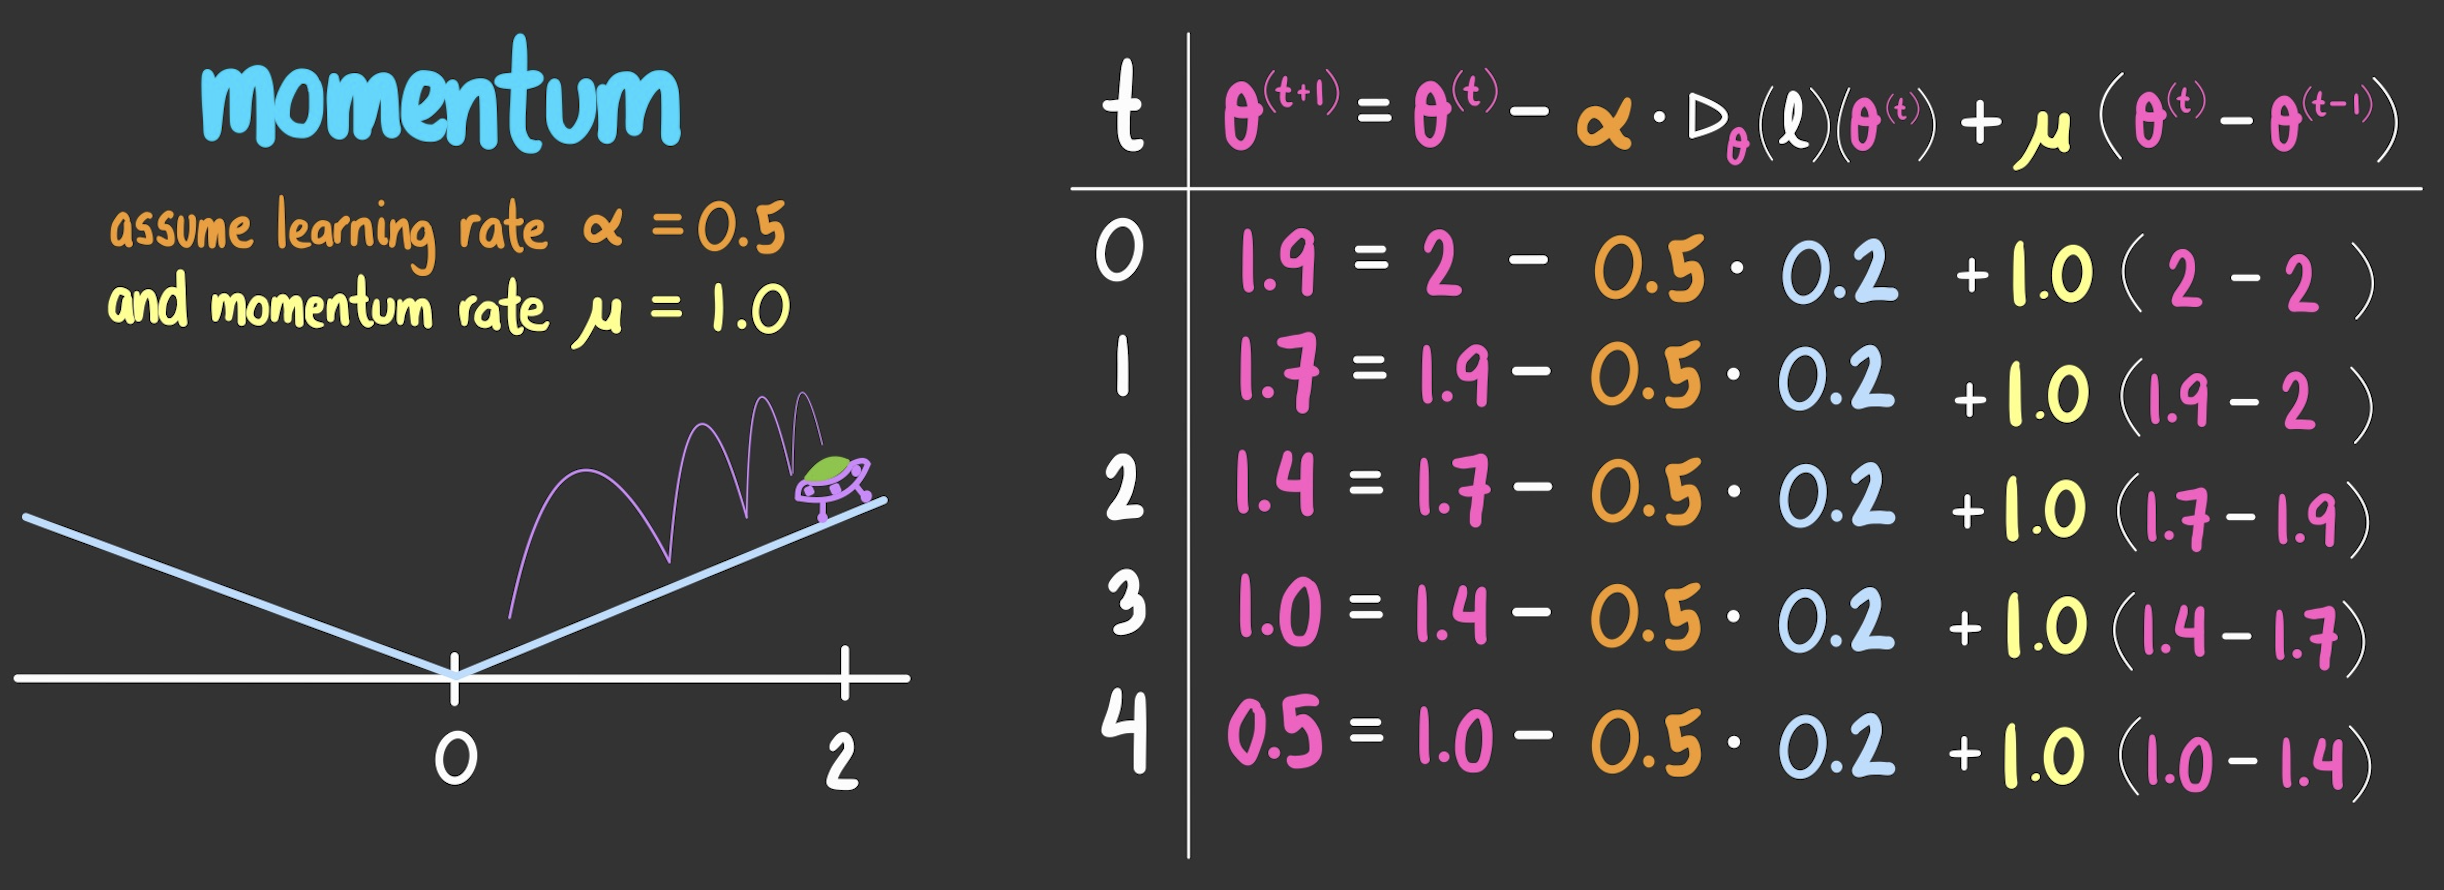 momentum
assume learning rate α = 0.5
and momentum rate μ = 1.0
0 2
t θ^(t+1) = θ^(t) − α · ▷_θ(l)(θ^(t)) + μ(θ^(t) − θ^(t−1))
0 1.9 = 2 − 0.5 · 0.2 + 1.0 (2 − 2)
1 1.7 = 1.9 − 0.5 · 0.2 + 1.0 (1.9 − 2)
2 1.4 = 1.7 − 0.5 · 0.2 + 1.0 (1.7 − 1.9)
3 1.0 = 1.4 − 0.5 · 0.2 + 1.0 (1.4 − 1.7)
4 0.5 = 1.0 − 0.5 · 0.2 + 1.0 (1.0 − 1.4)